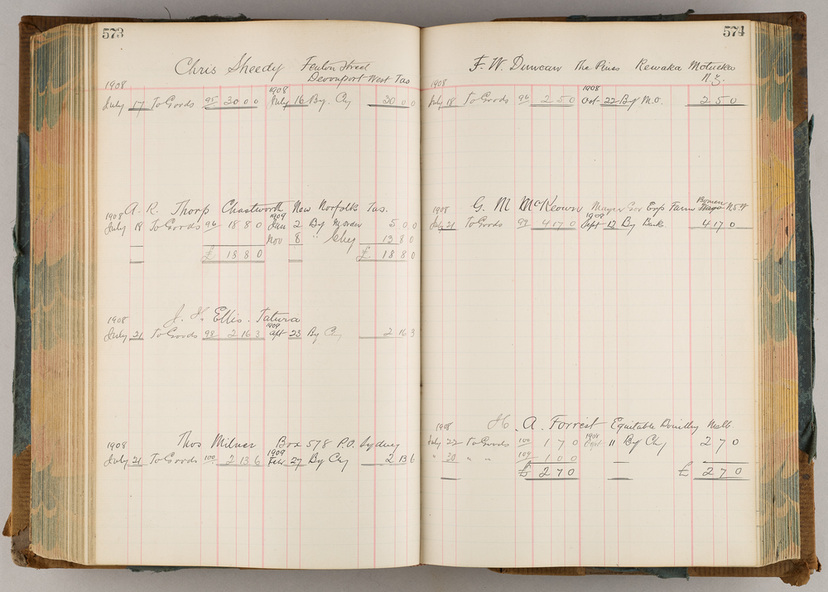 573
Chris Sheedy Fenton Street
Devonport West Tas
1908 1908
July 17 To Goods 95 20 0 0 July 16 By Chq 20 0 0
A. R. Thorp Chastworth New Norfolk Tas.
1908 1909
July 18 To Goods 96 18 8 0 Jan 2 By 5 0 0
Nov 8 " Chq 13 8 0
£ 18 8 0 £ 18 8 0
J. H. Ellis. Tatura
1908 1909
July 21 To Goods 98 2 16 3 Apl 23 By Chq 2 16 3
Thos Milner Box 578 P.O. Sydney
1908 1909
July 21 To Goods 100 2 13 6 Feb 27 By Chq 2 13 6
574
F. W. Duncan The Pines Rewaka Motueka
N.Z.
1908 1908
July 18 To Goods 96 2 5 0 Oct 22 By M.O. 2 5 0
G. M. McKeown Farm N.S.W
1908 1909
July 21 To Goods 99 4 17 0 Sept 13 By Bank 4 17 0
H. A. Forrest Equitable Building Melb
1908 1908
July 22 To Goods 100 1 7 0 Sept 11 By Chq 2 7 0
" 30 " " 107 1 0 0
£ 2 7 0 £ 2 7 0